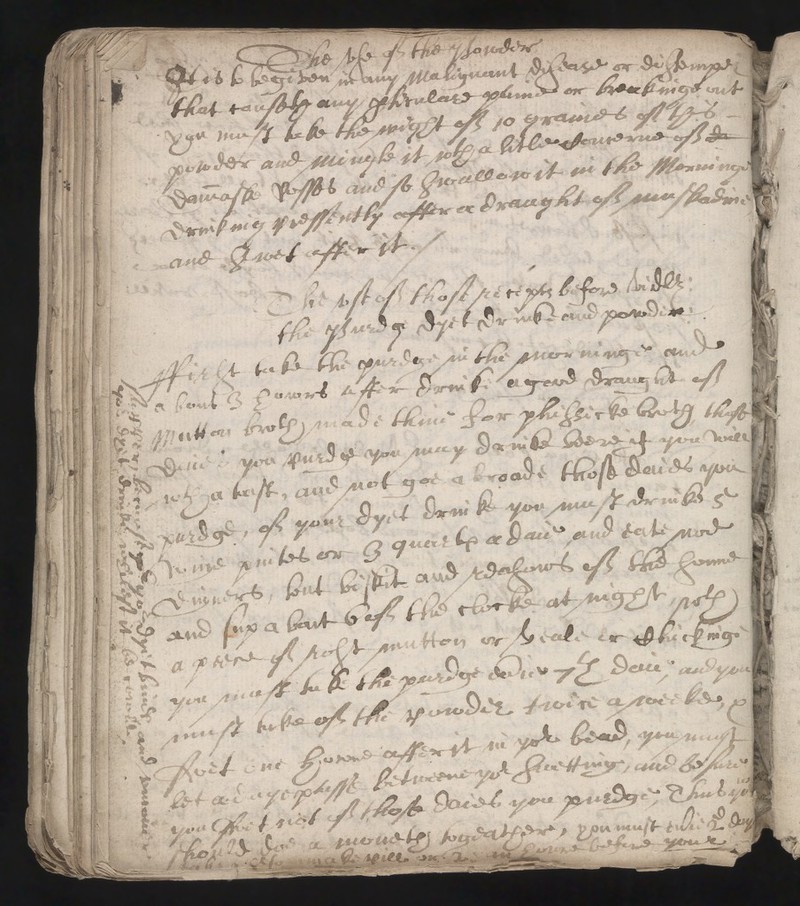 The use of the powder
It is to be given in any Malignant disease or distemper
that causeth any perticulare paine or breakinge out
you must take the waight of 10 graines of this
powder and mingle it wth a litle Conserve of
Damaske Rosses and so swallow it in the Morninge
drinking pressently after a draught of muskadine
and swet after it.
The use of those recepts before vidlz:
the purdg dyet drinke and powder.
ffirst take the purdge in the morninge and
a bout 3 howrs after drinke a good draught of
Mutton broth made thine for phissicke broth, those
daies you purdge you may drinke beere if you will
wth a tost, and not goe a broade those daies you
purdge, of your dyet drinke you must drinke 5
wine pintes or 3 quarts a daie and eate noe
dinners, but bisket and of the
and sup a bout 6 of the clocke at night, wth
a peece of rost mutton or veale or Chickinge
you must take the purdge everie 7th daie, and you
must take of the powder twice a weeke, &
swet one howre after it in yor bead, you must
let a daye passe betweene yor swetting, and besure
you swet not of those daies you purdge, Thus you
should doe a moneth togeather, you must everie day
make pill an howre before your
you dyet drinke